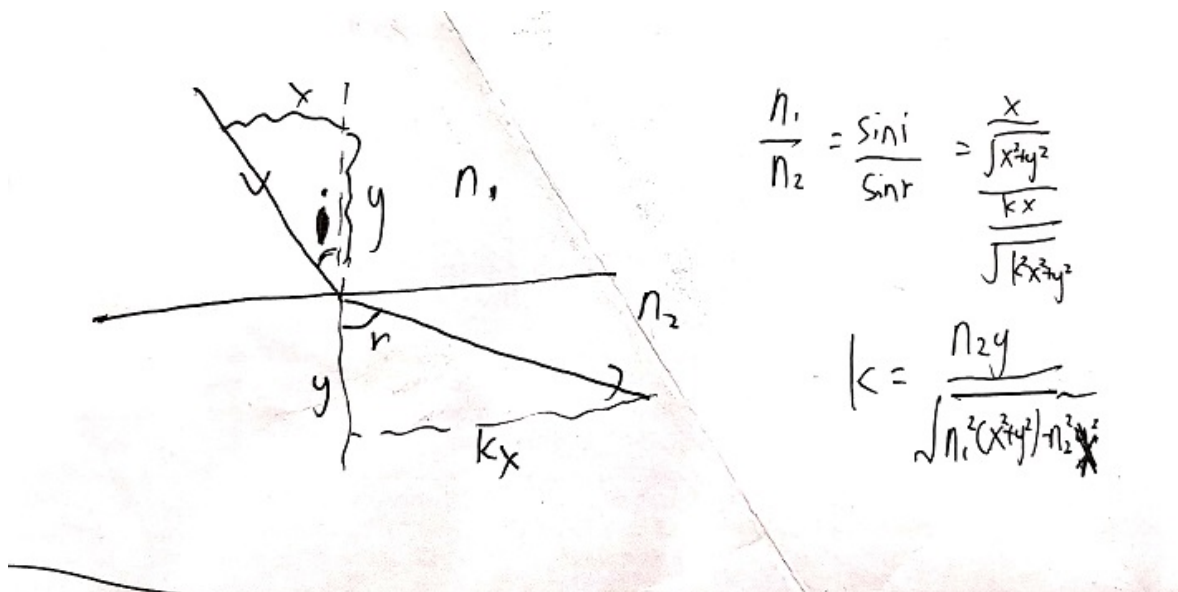 x
i
y
n₁
r
n₂
y
kx
n₁/n₂ = sin i/sin r = (x/√(x²+y²))/(kx/√(k²x²+y²))
k = n₂y/√(n₁²(x²+y²)-n₂²x²)